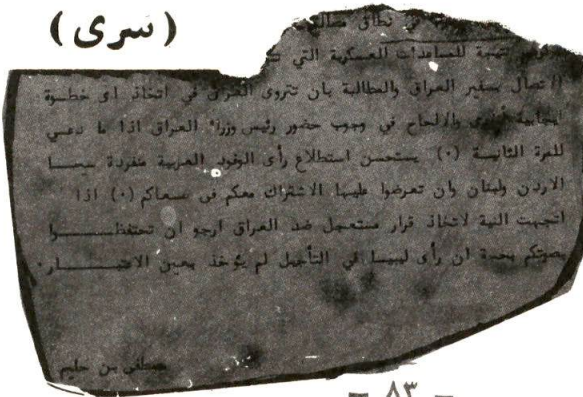 (سرى)
في نطاق
للمساعدات العسكرية التي
الاتصال بسفير العراق والمطالبة بان تتروى العراق في اتخاذ اى خطـوة
ايجابية أخرى والالحاح في وجوب حضور رئيس وزراء العراق اذا ما دعي
للمرة الثانيـة (٠) يستحسن استطلاع رأى الوفود العربية منفردة سيمـا
الاردن ولبنان وان تعرضوا عليهـا الاشتراك معكم فى مسعاكم (٠) اذا
اتجهت النية لاتخاذ قرار مستعجل ضد العراق ارجو ان تحتفظـــوا
بصوتكم بحجة ان رأى ليبيـا في التأجيل لم يؤخذ بعين الاعتبــــار٠
مصطفى بن حليم
– ٨٣ –